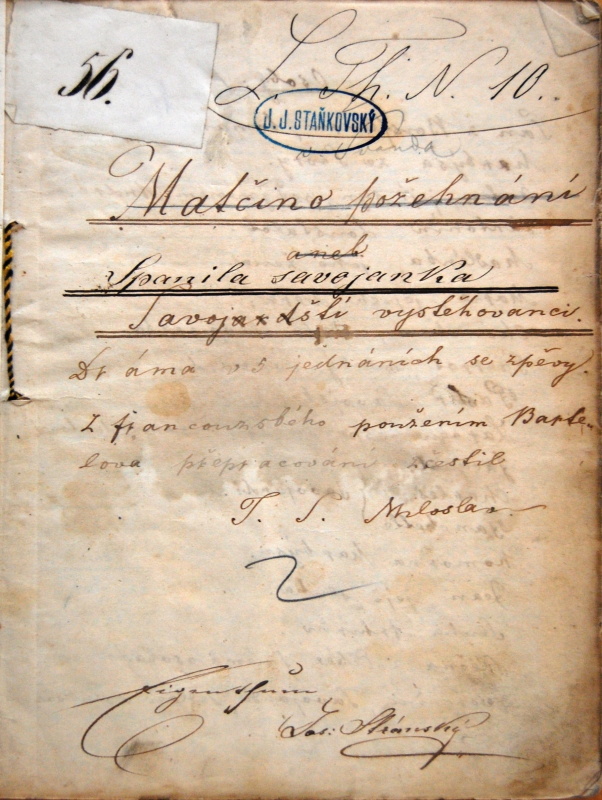 56.
L. Th. N. 10.
J. J. STAŇKOVSKÝ
Matčino požehnání
aneb
Spanilá savojanka
Savojxxdští vystěhovanci.
Drama v 5 jednáních se zpěvy.
Z francouzského použením Barte-
lova přepracování zčeštil
T. S. Miloslav
Eigenthum
Jos: Stránský